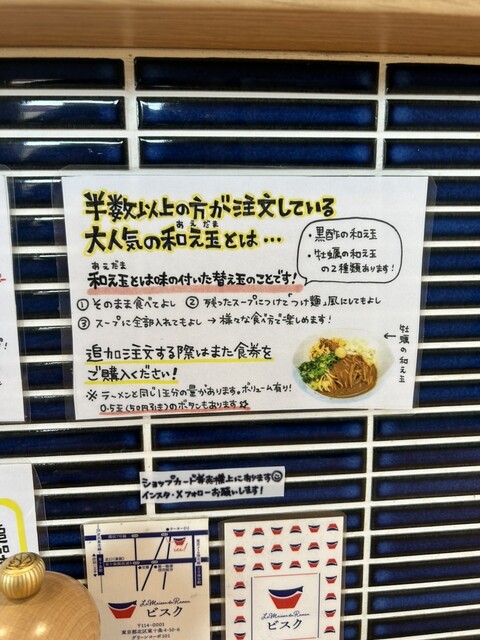 半数以上の方が注文している
大人気の和え玉とは…
あえだま
・黒酢の和え玉
・牡蠣の和え玉
の2種類あります!
あえだま
和え玉とは味の付いた替え玉のことです!
①そのまま食べてよし ②残ったスープにつけて「つけ麺」風にしてもよし
③スープに全部入れてもよし → 様々な食べ方で楽しめます!
← 牡蠣の和え玉
追加注文する際はまた食券を
ご購入ください!
※ラーメンと同じ1玉分の量があります。ボリューム有り!
0.5玉(50円引き)のボタンもあります☆
ショップカード券売機上にあります☺
インスタ・Xフォローお願いします!
La Maison du Ramen
ビスク
〒114-0001
東京都北区東十条4-10-6
La Maison du Ramen
ビスク